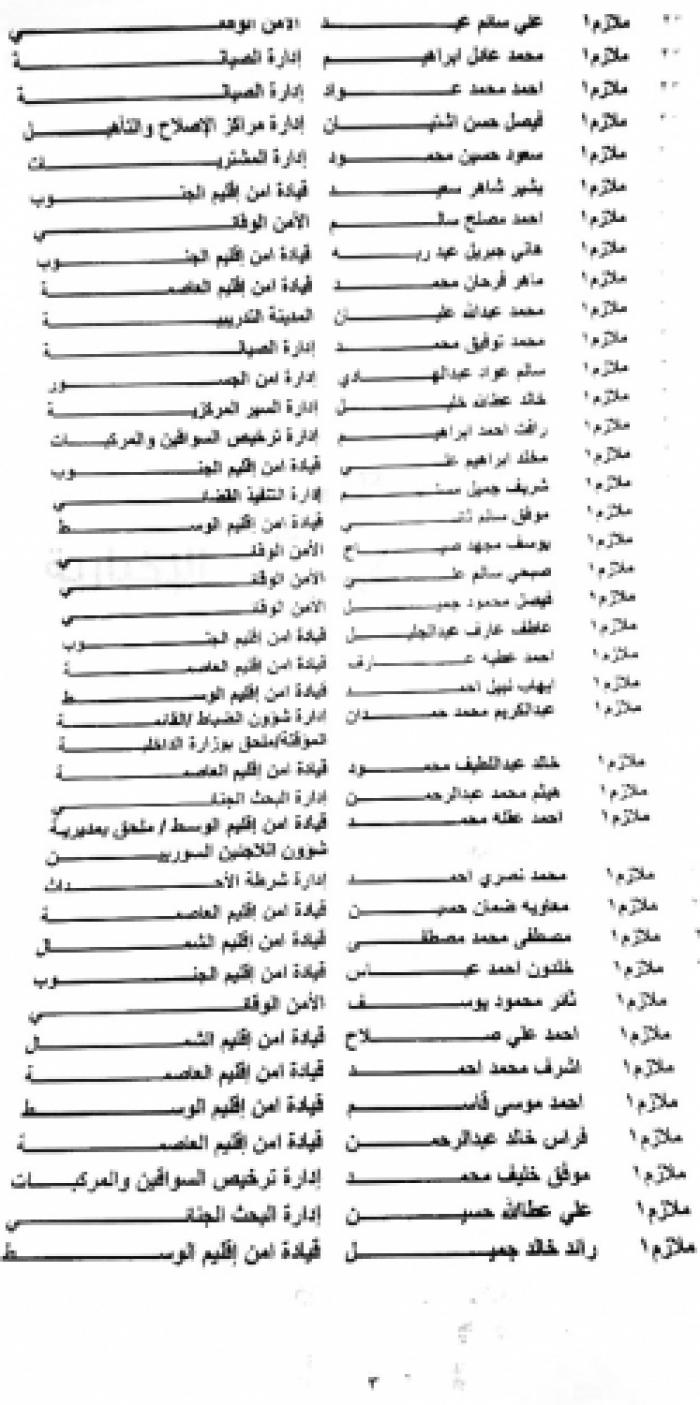 ملازم١ علي سالم عيد الأمن الوقائي
ملازم١ محمد عادل ابراهيم إدارة الصيانة
ملازم١ احمد محمد عواد إدارة الصيانة
ملازم١ فيصل حسن اشتيان إدارة مراكز الإصلاح والتأهيل
ملازم١ سعود حسين محمود إدارة المشتريات
ملازم١ بشير شاهر سعيد قيادة امن إقليم الجنوب
ملازم١ احمد مصلح سالم الأمن الوقائي
ملازم١ هاني جبريل عبد ربه قيادة امن إقليم الجنوب
ملازم١ ماهر فرحان محمد قيادة امن إقليم العاصمة
ملازم١ محمد عبدالله عليان المدينة التدريبية
ملازم١ محمد توفيق محمد إدارة الصيانة
ملازم١ سالم عواد عبدالهادي إدارة امن الجسور
ملازم١ خالد عطالله خليل إدارة السير المركزية
ملازم١ رافت احمد ابراهيم إدارة ترخيص السواقين والمركبات
ملازم١ مخلد ابراهيم علي قيادة امن إقليم الجنوب
ملازم١ شريف جميل مسلم إدارة التنفيذ القضائي
ملازم١ موفق سالم ثاني قيادة امن إقليم الوسط
ملازم١ يوسف مجهد صباح الأمن الوقائي
ملازم١ صبحي سالم علي الأمن الوقائي
ملازم١ فيصل محمود جميل الأمن الوقائي
ملازم١ عاطف عارف عبدالجليل قيادة امن إقليم الجنوب
ملازم١ احمد عطيه عارف قيادة امن إقليم العاصمة
ملازم١ ايهاب نبيل احمد قيادة امن إقليم الوسط
ملازم١ عبدالكريم محمد حمدان إدارة شؤون الضباط/القائمة
المؤقتة/ملحق بوزارة الداخلية
ملازم١ خالد عبداللطيف محمود قيادة امن إقليم العاصمة
ملازم١ هيثم محمد عبدالرحمن إدارة البحث الجنائي
ملازم١ احمد عقله محمد قيادة امن إقليم الوسط / ملحق بمديرية
شؤون اللاجئين السوريين
ملازم١ محمد نصري احمد إدارة شرطة الأحداث
ملازم١ معاويه ضمان حسين قيادة امن إقليم العاصمة
ملازم١ مصطفى محمد مصطفى قيادة امن إقليم الشمال
ملازم١ خلدون احمد عباس قيادة امن إقليم الجنوب
ملازم١ ثائر محمود يوسف الأمن الوقائي
ملازم١ احمد علي صلاح قيادة امن إقليم الشمال
ملازم١ اشرف محمد احمد قيادة امن إقليم العاصمة
ملازم١ احمد موسى قاسم قيادة امن إقليم الوسط
ملازم١ فراس خالد عبدالرحمن قيادة امن إقليم العاصمة
ملازم١ موفق خليف محمد إدارة ترخيص السواقين والمركبات
ملازم١ علي عطاالله حسين إدارة البحث الجنائي
ملازم١ رائد خالد جميل قيادة امن إقليم الوسط
٣